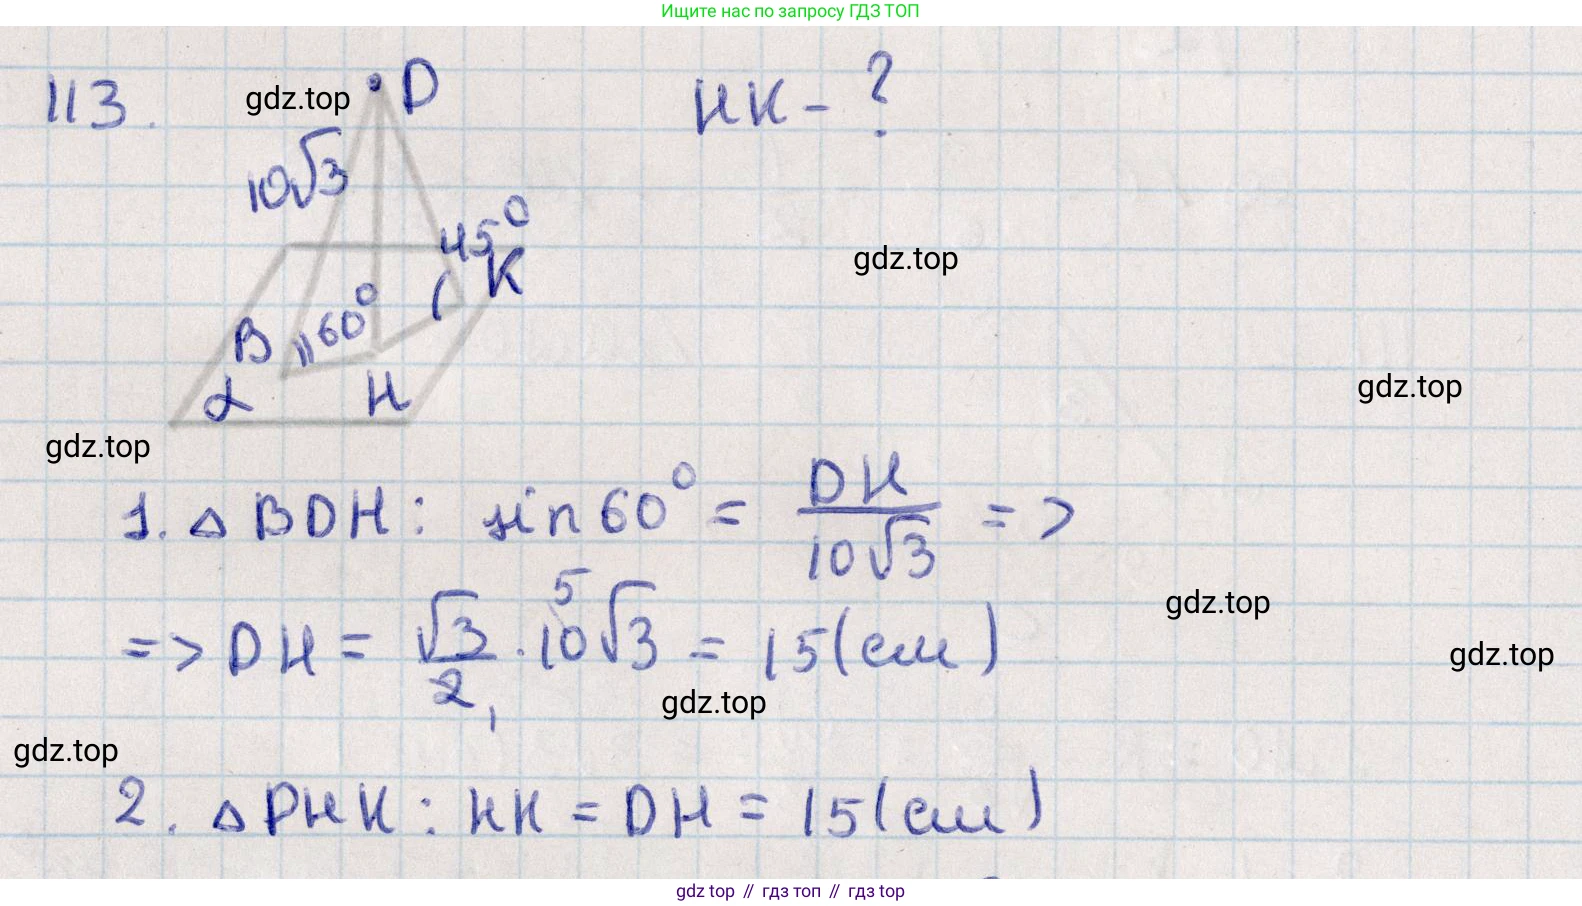 Ищите нас по запросу ГДЗ ТОП
113.
gdz.top
D
HK - ?
10√3
45°
K
gdz.top
60°
B
α
H
gdz.top
gdz.top
1. △ BDH: sin 60° = DH / 10√3 =>
=> DH = √3/2 · 10√3 = 15 (см)
5
1
gdz.top
gdz.top
gdz.top
gdz.top
2. △ DHK: HK = DH = 15 (см)
gdz top // гдз топ // гдз top